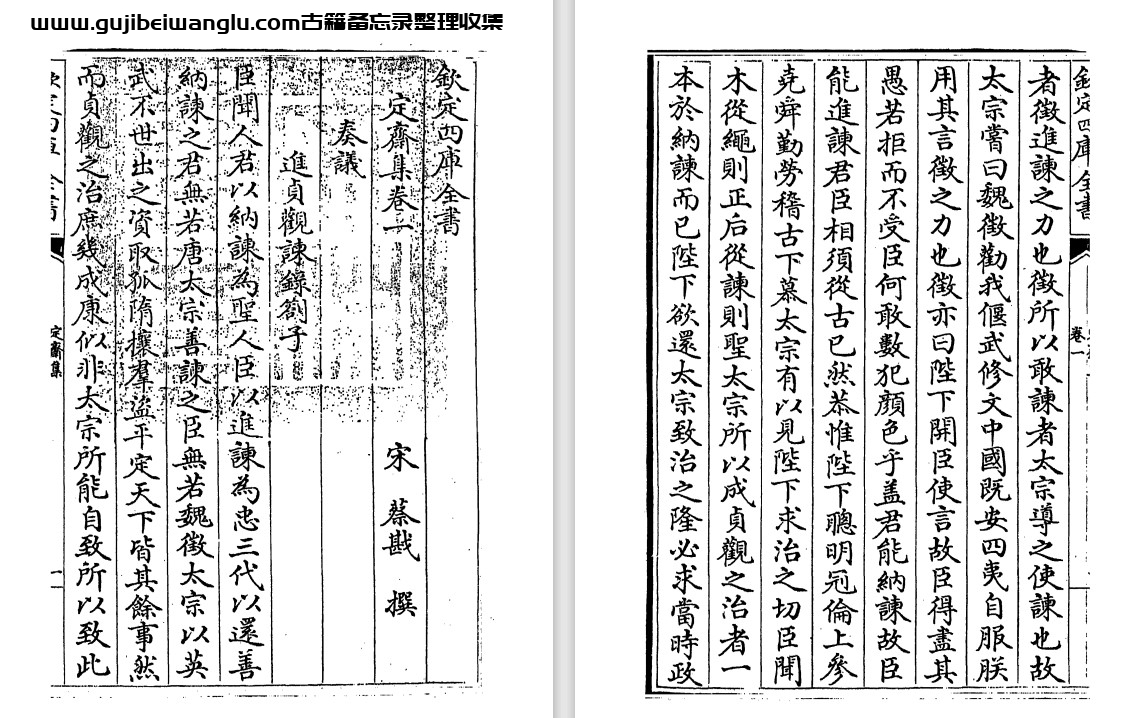 www.gujibeiwanglu.com古籍备忘录整理收集
欽定四庫全書
定齋集卷一
宋 蔡戡 撰
奏議
進貞觀諫錄劄子
臣聞人君以納諫為聖人臣以進諫為忠三代以還善
納諫之君無若唐太宗善諫之臣無若魏徵太宗以英
武不世出之資取孤隋攘羣盜平定天下皆其餘事然
而貞觀之治庶幾成康似非太宗所能自致所以致此
欽定四庫全書
定齋集
一
欽定四庫全書
卷一
者徵進諫之力也徵所以敢諫者太宗導之使諫也故
太宗嘗曰魏徵勸我偃武修文中國既安四夷自服朕
用其言徵之力也徵亦曰陛下開臣使言故臣得盡其
愚若拒而不受臣何敢數犯顏色乎盖君能納諫故臣
能進諫君臣相須從古已然恭惟陛下聰明冠倫上參
堯舜勤勞稽古下慕太宗有以見陛下求治之切臣聞
木從繩則正后從諫則聖太宗所以成貞觀之治者一
本於納諫而已陛下欲還太宗致治之隆必求當時政